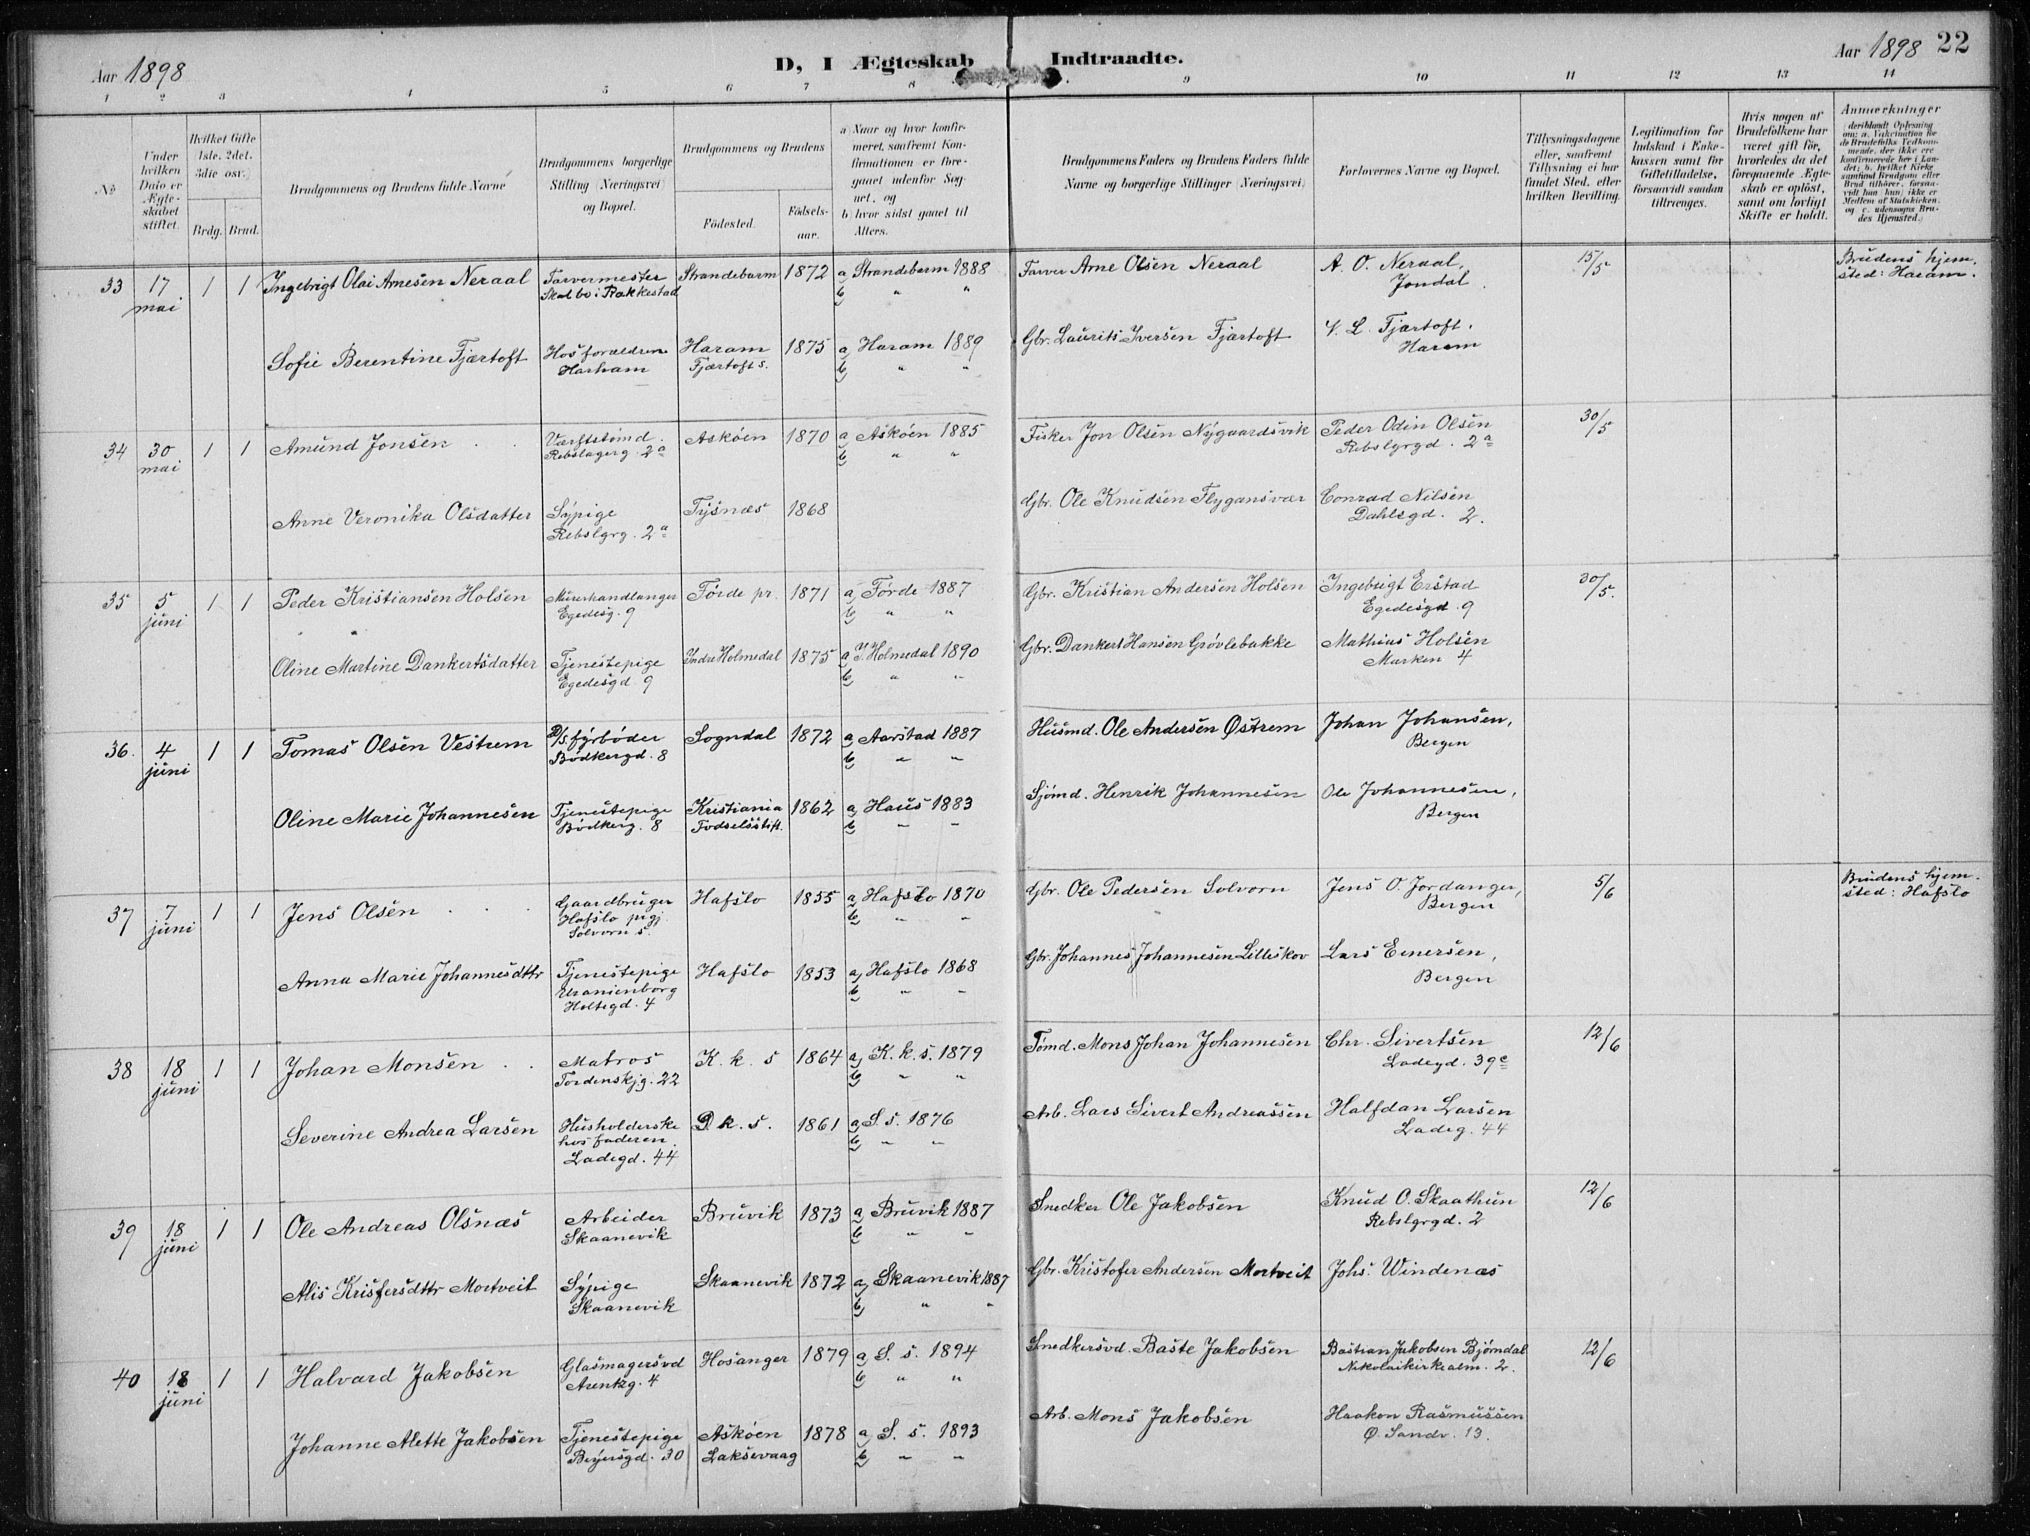 Aar 1898
D, I Ægteskab Indtraadte.
Aar 1898 22
1 2 3 4 5 6 7 8 9 10 11 12 13 14
No
Under hvilken Dato er Ægteskabet stiftet.
Hvilket Gifte 1ste. 2det. 3die osv.)
Brdg. Brud.
Brudgommens og Brudens fulde Navne
Brudgommens borgerlige Stilling (Næringsvei) og Bopæl.
Brudgommens og Brudens
Födested. Födsels-aar.
a) Naar og hvor konfirmeret, saafremt Konfirmationen er foregaaet udenfor Sognet, og
b) hvor sidst gaaet til Alters.
Brudgommens Faders og Brudens Faders fulde Navne og borgerlige Stillinger (Næringsvei)
Forlovernes Navne og Bopæl.
Tillysningsdagene eller, saafremt Tillysning ei har fundet Sted, efter hvilken Bevilling.
Legitimation for Indskud i Enkekassen samt for Giftetilladelse, forsaavidt saadan tiltrænges.
Hvis nogen af Brudefolkene har været gift för, hvorledes da det foregaaende Ægteskab er oplöst, samt om lovligt Skifte er holdt.
Anmerkninger (deriblandt Oplysning om: a. Vakcination for de Brudefolks Vedkommende, der ikke ere konfirmerede her i Landet; b. hvilket Kirkesamfund Brudgom eller Brud tilhörer, forsaavidt han (hun) ikke er Medlem af Statskirken, og c. udensogns Brudes Hjemsted.)
33 17 mai 1 1 Ingebrigt Olai Arnesen Neraal Farvermester Skal bo i Rakkestad Strandebarm 1872 a) Strandebarm 1888 b) " " Farver Arne Olsen Neraal A. O. Neraal, Jondal. 15/5 Brudens hjemsted: Haram.
Sofie Berentine Fjærtoft Hos forældrene Harham Haram Fjærtoft s. 1875 a) Haram 1889 b) " " Gbr. Laurits Iversen Fjærtoft V. L. Fjærtoft, Haram
34 30 mai 1 1 Amund Jonsen Værftstømd. Rebslagerg. 2a Askøen 1870 a) Askøen 1885 b) " " Fisker Jon Olsen Nygaardsvik Peder Odin Olsen Rebslgrgd. 2a 30/5
Anne Veronika Olsdatter Sypige Rebslgrg. 2a Tysnæs 1868 Gbr. Ole Knudsen Flygansvær Conrad Nilsen Dahlsgd. 2.
35 5 juni 1 1 Peder Kristiansen Holsen Murerhandlanger Egedesg. 9 Førde pr. 1871 a) Førde 1887 b) " " Gbr. Kristian Andersen Holsen Ingebrigt Erstad Egedesgd. 9 30/5.
Oline Martine Dankertsdatter Tjenestepige Egedesgd 9 Indre Holmedal 1875 a) I. Holmedal 1890 b) " " Gbr. Dankert Hansen Grøvlebakke Mathias Holsen Marken 4
36. 4 juni 1 1 Tomas Olsen Vestrem D/S. fyrbøder Bødkergd. 8 Sogndal 1872 a) Aarstad 1887 b) " " Husmd. Ole Andersen Østrem Johan Johansen, Bergen
Oline Marie Johannesen Tjenestepige Bødkerg. 8 Kristiania Fødselsstift. 1862 a) Haus 1883 b) " " Sjømd. Henrik Johannesen Ole Johannesen, Bergen
37 7 juni 1 1 Jens Olsen Gaardbruger Hafslo pgj. Solvorn s. Hafslo 1855 a) Hafslo 1870 b) " " Gbr. Ole Pedersen Solvorn Jens O. Jordanger, Bergen 5/6 Brudens hjemsted: Hafslo
Anna Marie Johannesdttr Tjenestepige Uranienborg Holtegd. 4 Hafslo 1853 a) Hafslo 1868 b) " " Gbr. Johannes Johannesen Lilleskov Lars Einersen, Bergen
38 18 juni 1 1 Johan Monsen Matros Tordenskjg. 22 K. k. s 1864 a) K. k. s. 1879 b) " " Tømd. Mons Johan Johannesen Chr. Sivertsen Ladegd. 39c 12/6
Severine Andrea Larsen Husholderske hos faderen. Ladegd. 44 D k. s. 1861 a) S. s. 1876 b) " " Arb. Lars Sivert Andreassen Halfdan Larsen Ladeg. 44
39 18 juni 1 1 Ole Andreas Olsnæs Arbeider Skaanevik Bruvik 1873 a) Bruvik 1887 b) " " Snedker Ole Jakobsen Knud O. Skaathun Rebslgrgd. 2 12/6
Alis Krisfersdttr Mortveit Sypige Skaanevik Skaanevik 1872 a) Skaanevik 1887 b) " " Gbr. Kristofer Andersen Mortveit Johs. Windenæs
40 18 juni 1 1 Halvard Jakobsen Glasmagersvd Arentzg. 4 Hosanger 1879 a) S. s. 1894 b) " " Snedkersvd. Baste Jakobsen Bastian Jakobsen Bjørndal Nikolaikirkealm. 2. 12/6
Johanne Alette Jakobsen Tjenestepige Beyersgd. 30 Askøen Laksevaag 1878 a) S. s. 1893 b) " " Arb. Mons Jakobsen Haakon Rasmussen Ø. Sandv. 13.